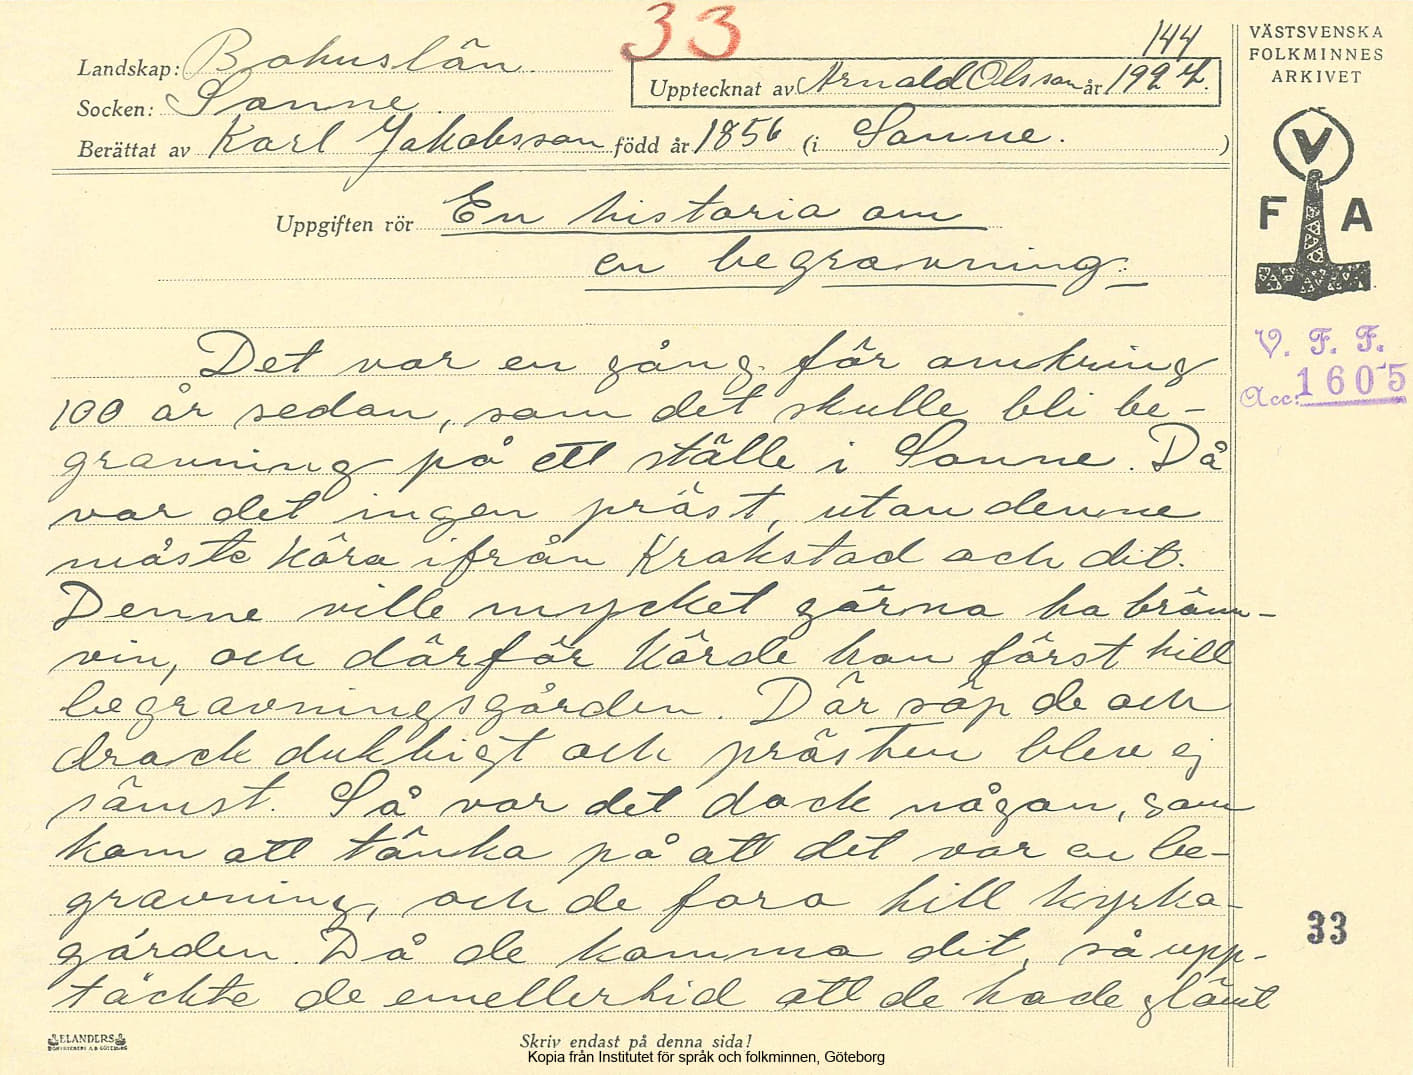 33
144
Landskap: Bohuslän.
Socken: Sanne.
Upptecknat av Arnald Olsson år 1924.
Berättat av Karl Jakobsson född år 1856 (i Sanne. )
VÄSTSVENSKA
FOLKMINNES
ARKIVET
V
F A
Uppgiften rör En historia om
en begravning.
V. F. F.
Acc: 1605
Det var en gång för omkring
100 år sedan, som det skulle bli be-
gravning på ett ställe i Sanne. Då
var det ingen präst, utan denne
måste köra ifrån Krokstad och dit.
Denne ville mycket gärna ha bränn-
vin, och därför körde han först till
begravningsgården. Där söp de och
drack duktigt och prästen blev ej
sämst. Så var det dock någon, som
kom att tänka på att det var en be-
gravning, och de foro till kyrko-
gården. Då de kommo dit, så upp-
täckte de emellertid att de hade glömt
33
ELANDERS
Skriv endast på denna sida!
Kopia från Institutet för språk och folkminnen, Göteborg